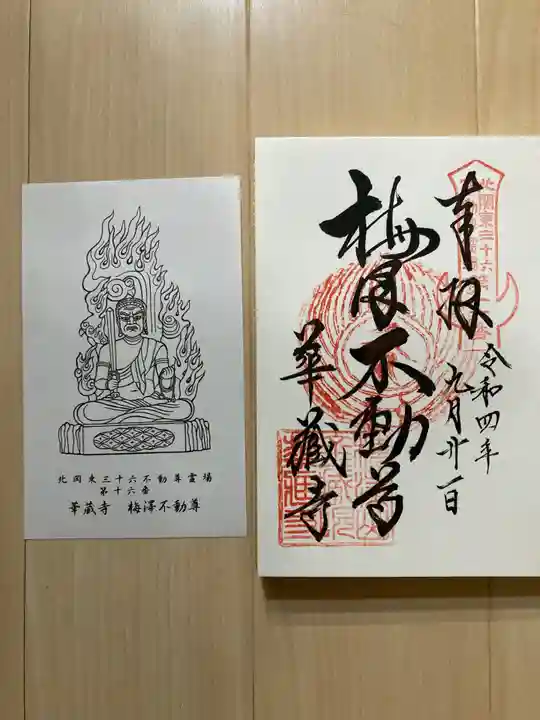 北関東三十六不動尊霊場
第十六番
華蔵寺 梅澤不動尊
奉拝
令和四年
九月廿一日
梅澤不動尊
華蔵寺